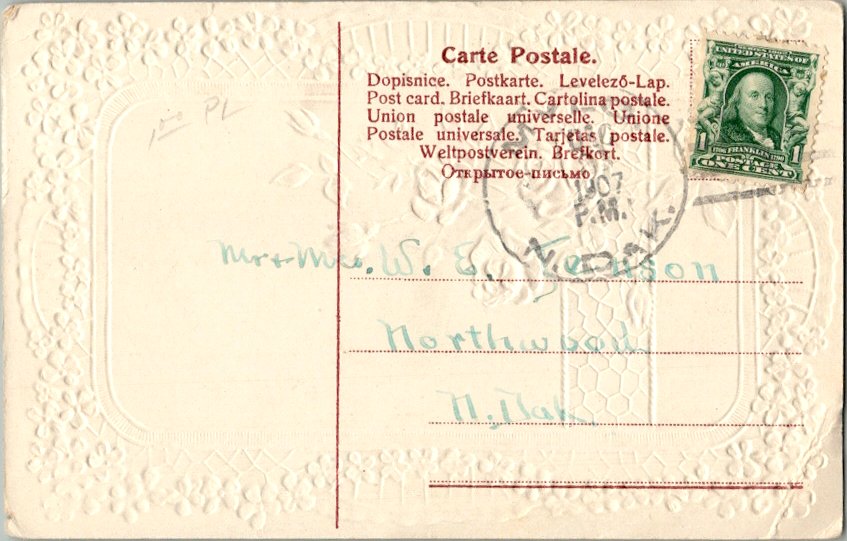 Carte Postale.
Dopisnice. Postkarte. Levelező-Lap.
Post card. Briefkaart. Cartolina postale.
Union postale universelle. Unione
Postale universale. Tarjetas postale.
Weltpostverein. Brefkort.
Открытое-письмо
UNITED STATES OF
AMERICA
1 1706 FRANKLIN 1790 1
POSTAGE
ONE CENT
1907
P.M.
N. DAK.
Mr + Mrs. W. E. Jenson
Northwood
N. Dak